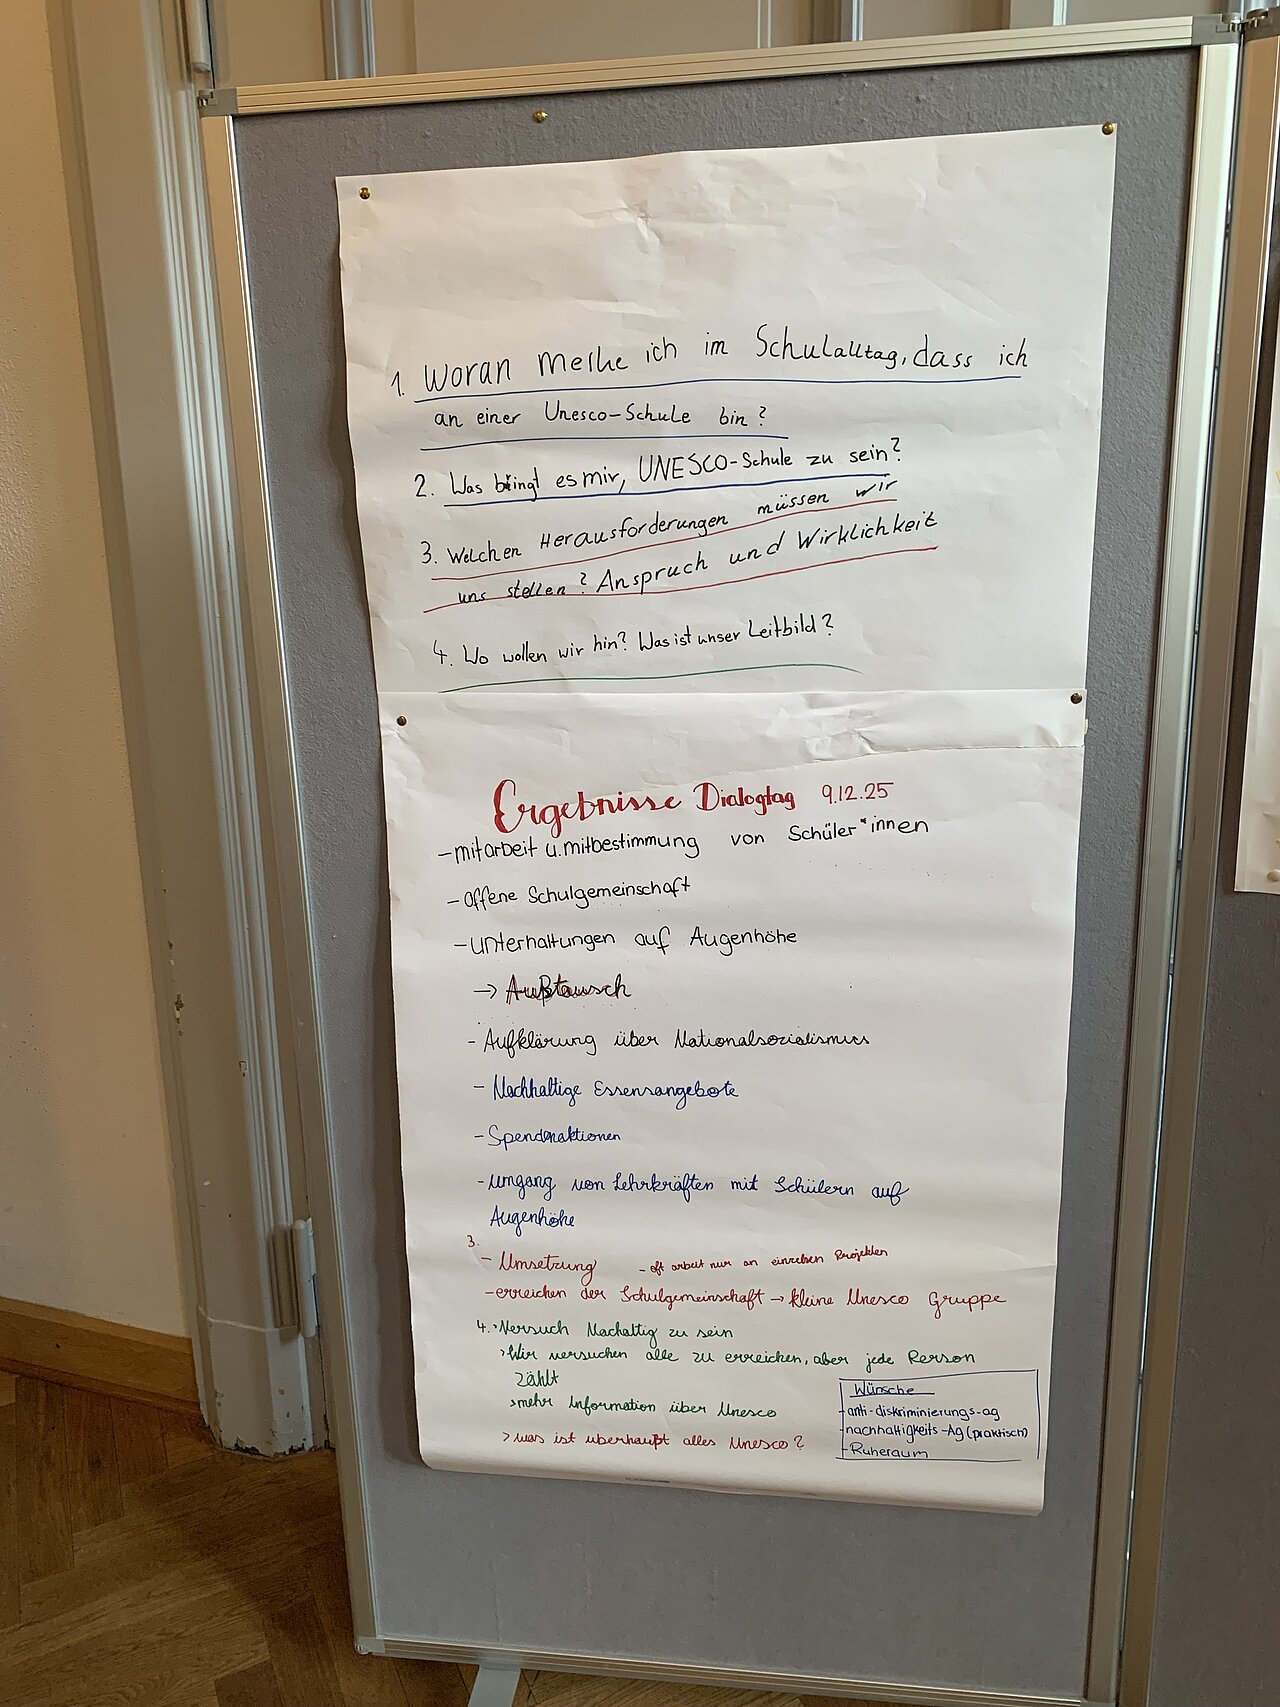 1. Woran merke ich im Schulalltag, dass ich
an einer Unesco-Schule bin?
2. Was bringt es mir, UNESCO-Schule zu sein?
3. Welchen Herausforderungen müssen wir
uns stellen? Anspruch und Wirklichkeit
4. Wo wollen wir hin? Was ist unser Leitbild?
Ergebnisse Dialogtag 9.12.25
- mitarbeit u. mitbestimmung von Schüler*innen
- offene Schulgemeinschaft
- unterhaltungen auf Augenhöhe
→ Austausch
- Aufklärung über Nationalsozialismus
- Nachhaltige Essensangebote
- Spendenaktionen
- umgang von Lehrkräften mit Schülern auf
Augenhöhe
3.
- Umsetzung - oft arbeit nur an einzelnen Projekten
- erreichen der Schulgemeinschaft → kleine Unesco Gruppe
4. > Versuch Nachaltig zu sein
> Wir versuchen alle zu erreichen, aber jede Person
zählt
> mehr Information über Unesco
> was ist überhaupt alles Unesco?
Wünsche
- anti-diskriminierungs-ag
- nachhaltigkeits-Ag (praktisch)
- Ruheraum